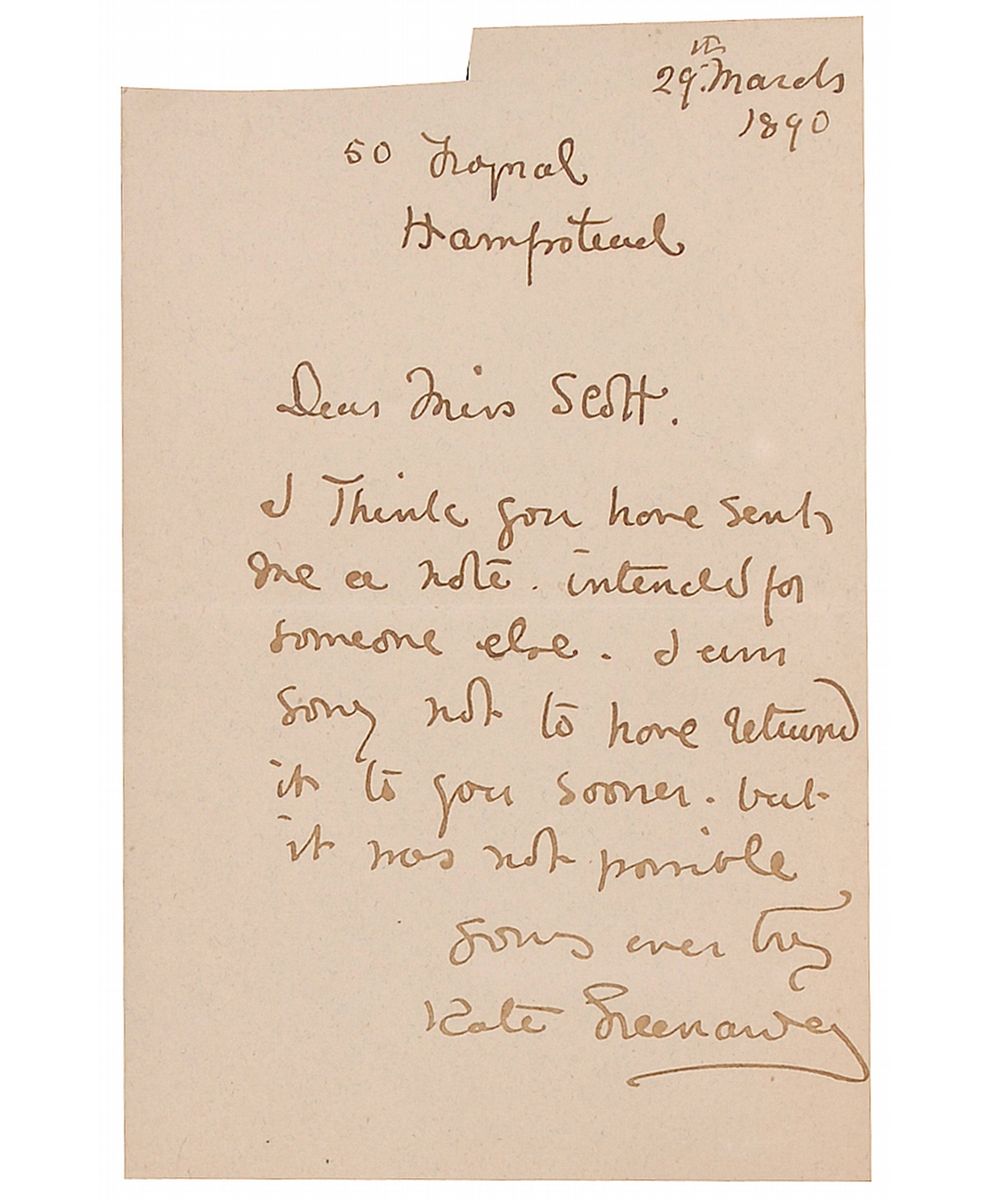 29th March
1890
50 Frognal
Hampstead
Dear Miss Scott.
I Think you have sent
me a note. intended for
someone else. I am
sorry not to have returned
it to you sooner. but
it was not possible
yours ever try
Kate Greenaway